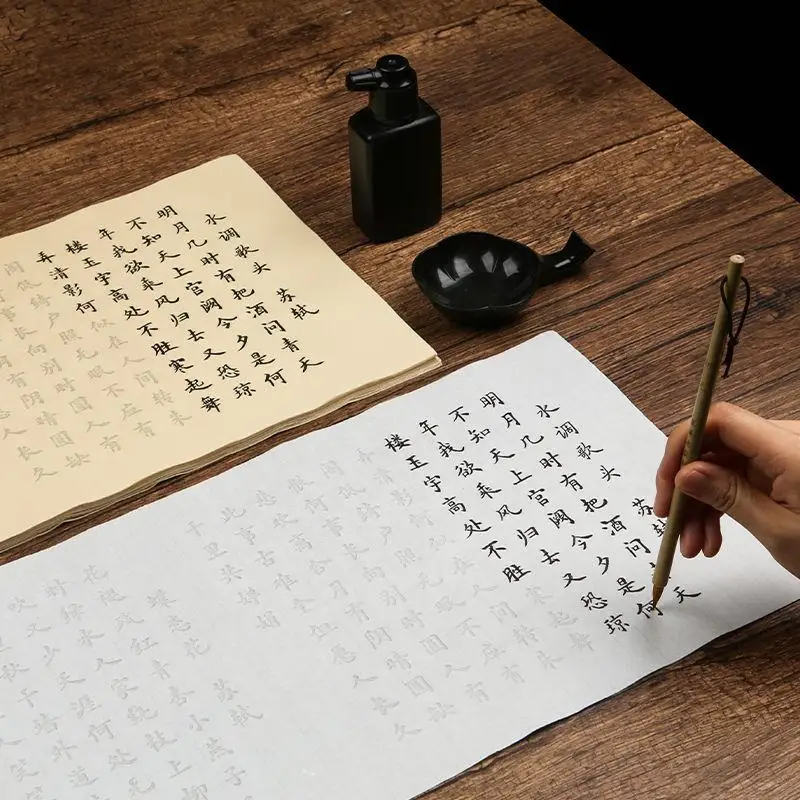 水调歌头 苏轼
明月几时有把酒问青天
不知天上宫阙今夕是何
年我欲乘风归去又恐琼
楼玉宇高处不胜寒起舞
弄清影何似在人间转朱
阁低绮户照无眠不应有
事长向别时圆人有
有阴晴圆缺
人长久
水调歌头 苏轼
明月几时有把酒问天
不知天上宫阙今夕是何
年我欲乘风归去又恐琼
楼玉宇高处不胜寒起舞
弄清影何似在人间转朱
阁低绮户照无眠不应有
恨何事长向别时圆人有
悲欢离合月有阴晴圆缺
此事古难全但愿人长久
千里共婵娟
蝶恋花 苏轼
花褪残红青杏小燕子
时绿水人家绕枝上柳
吹又少天涯何处无